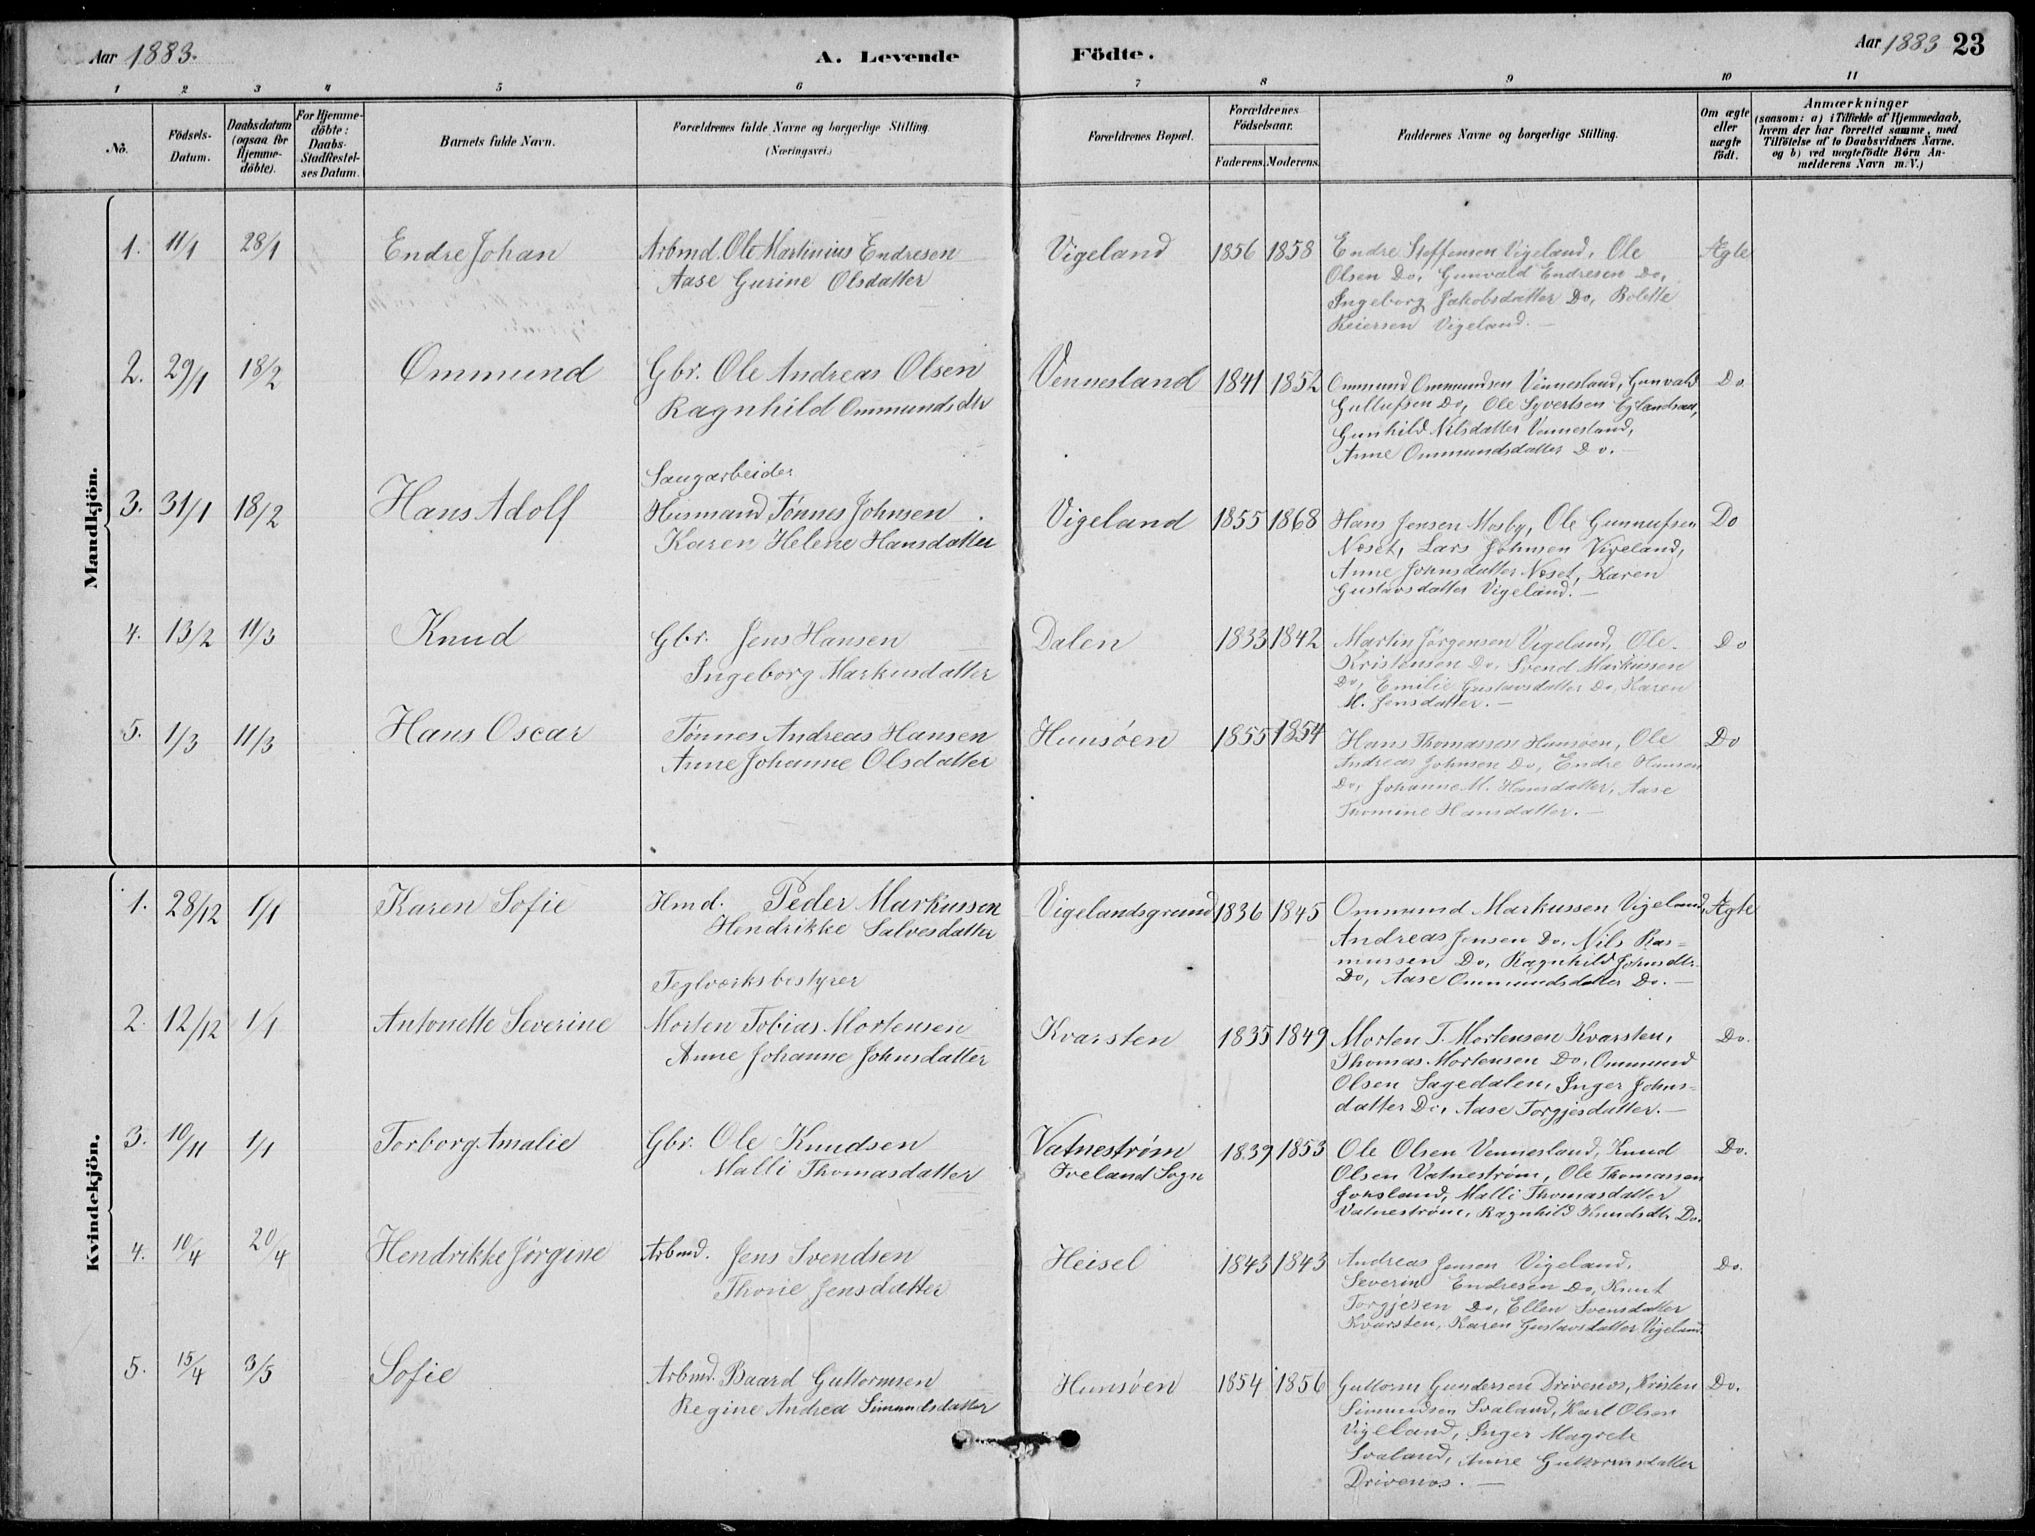 Aar 1883.
A. Levende Födte.
Aar 1883 23
1 2 3 4 5 6 7 8 9 10 11
No.
Födsels-
Datum.
Daabsdatum
(ogsaa för
Hjemme-
döbte).
For Hjemme-
döbte:
Daabs-
Stadfæstel-
ses Datum.
Barnets fulde Navn.
Forældrenes fulde Navne og borgerlige Stilling.
(Næringsvei.)
Forældrenes Bopæl.
Forældrenes
Födselsaar.
Faderens. Moderens.
Faddernes Navne og borgerlige Stilling.
Om ægte
eller
uægte
födt.
Anmærkninger
(saasom: a) i Tilfælde af Hjemmedaab,
hvem der har forrettet samme, med
Tilföielse af to Daabsvidners Navne.
og b) ved uægtefödte Börn An-
melderens Navn m. V.)
Mandkjön.
1. 11/1 28/1 Endre Johan
Arbmd. Ole Martinius Endresen
Aase Gurine Olsdatter
Vigeland 1856 1858
Endre Steffensen Vigeland, Ole
Olsen Do, Gunvald Endresen Do,
Ingeborg Jakobsdatter Do, Bolette
Reiersen Vigeland. —
Ægte
2. 29/1 18/2 Ommund
Gbr. Ole Andreas Olsen
Ragnhild Ommundsdtr
Vennesland 1841 1852
Ommund Ommundsen Vennesland, Gunvald
Gullufsen Do, Ole Syvertsen
Gunhild Nilsdatter Vennesland,
Anne Ommundsdatter Do. —
Do.
3. 31/1 18/2 Hans Adolf
Saugarbeider
Husmand Tønnes Johnsen
Karen Helene Hansdatter
Vigeland 1855 1868
Hans Jensen Mosby, Ole Gunnufsen
Neset, Lars Johnsen Vigeland,
Anne Johnsdatter Neset, Karen
Gustavsdatter Vigeland. —
Do
4. 13/2 11/3 Knud
Gbr. Jens Hansen
Ingeborg Markusdatter
Dalen 1833 1842
Martin Jørgensen Vigeland, Ole
Kristensen Do, Svend Markussen
Do, Emilie Gustavsdatter Do, Karen
M. Jensdatter. —
Do
5. 1/3 11/3 Hans Oscar
Tønnes Andreas Hansen
Anne Johanne Olsdatter
Hunsøen 1855 1854
Hans Thomassen Hunsøen, Ole
Andreas Johnsen Do, Endre Hansen
Do, Johanne M. Hansdatter, Aase
Thomine Hansdatter. —
Do
Kvindekjön.
1. 28/12 1/1 Karen Sofie
Hmd. Peder Markussen
Hendrikke Salvesdatter
Vigelandsgrund 1836 1845
Ommund Markussen Vigeland,
Andreas Jensen Do, Nils Ras-
mussen Do, Ragnhild Johnsdtr.
Do, Aase Ommundsdatter Do. —
Ægte
2. 12/12 1/1 Antonette Severine
Teglværksbestyrer
Morten Tobias Mortensen
Anne Johanne Johnsdatter
Kvarsten 1835 1849
Morten T. Mortensen Kvarsten,
Thomas Mortensen Do, Ommund
Olsen Sagedalen, Inger Johns-
datter Do, Aase Torgjesdatter. —
Do.
3. 10/11 1/1 Torborg Amalie
Gbr. Ole Knudsen
Malli Thomasdatter
Vatnestrøm
Iveland Sogn
1839 1853
Ole Olsen Vennesland, Knud
Olsen Vatnestrøm, Ole Thomassen
Malli Thomasdatter
Vatnestrøm, Ragnhild Knudsdtr. Do.
Do.
4. 10/4 20/4 Hendrikke Jørgine
Arbmd. Jens Svendsen
Thorie Jensdatter
Heisel 1843 1843
Andreas Jensen Vigeland,
Severin Endresen Do, Knut
Torgjesen Do, Ellen Svensdatter
Kvarsten, Karen Gustavsdatter Vigeland.
Do.
5. 15/4 3/5 Sofie
Arbmd. Baard Guttormsen
Regine Andrea Simundsdatter
Hunsøen 1854 1856
Guttorm Gundersen Drivenes, Kristen
Simundsen Svaland, Karl Olsen
Vigeland, Inger Magrete
Svaland, Anne Guttormsdatter
Drivenes. —
Do.